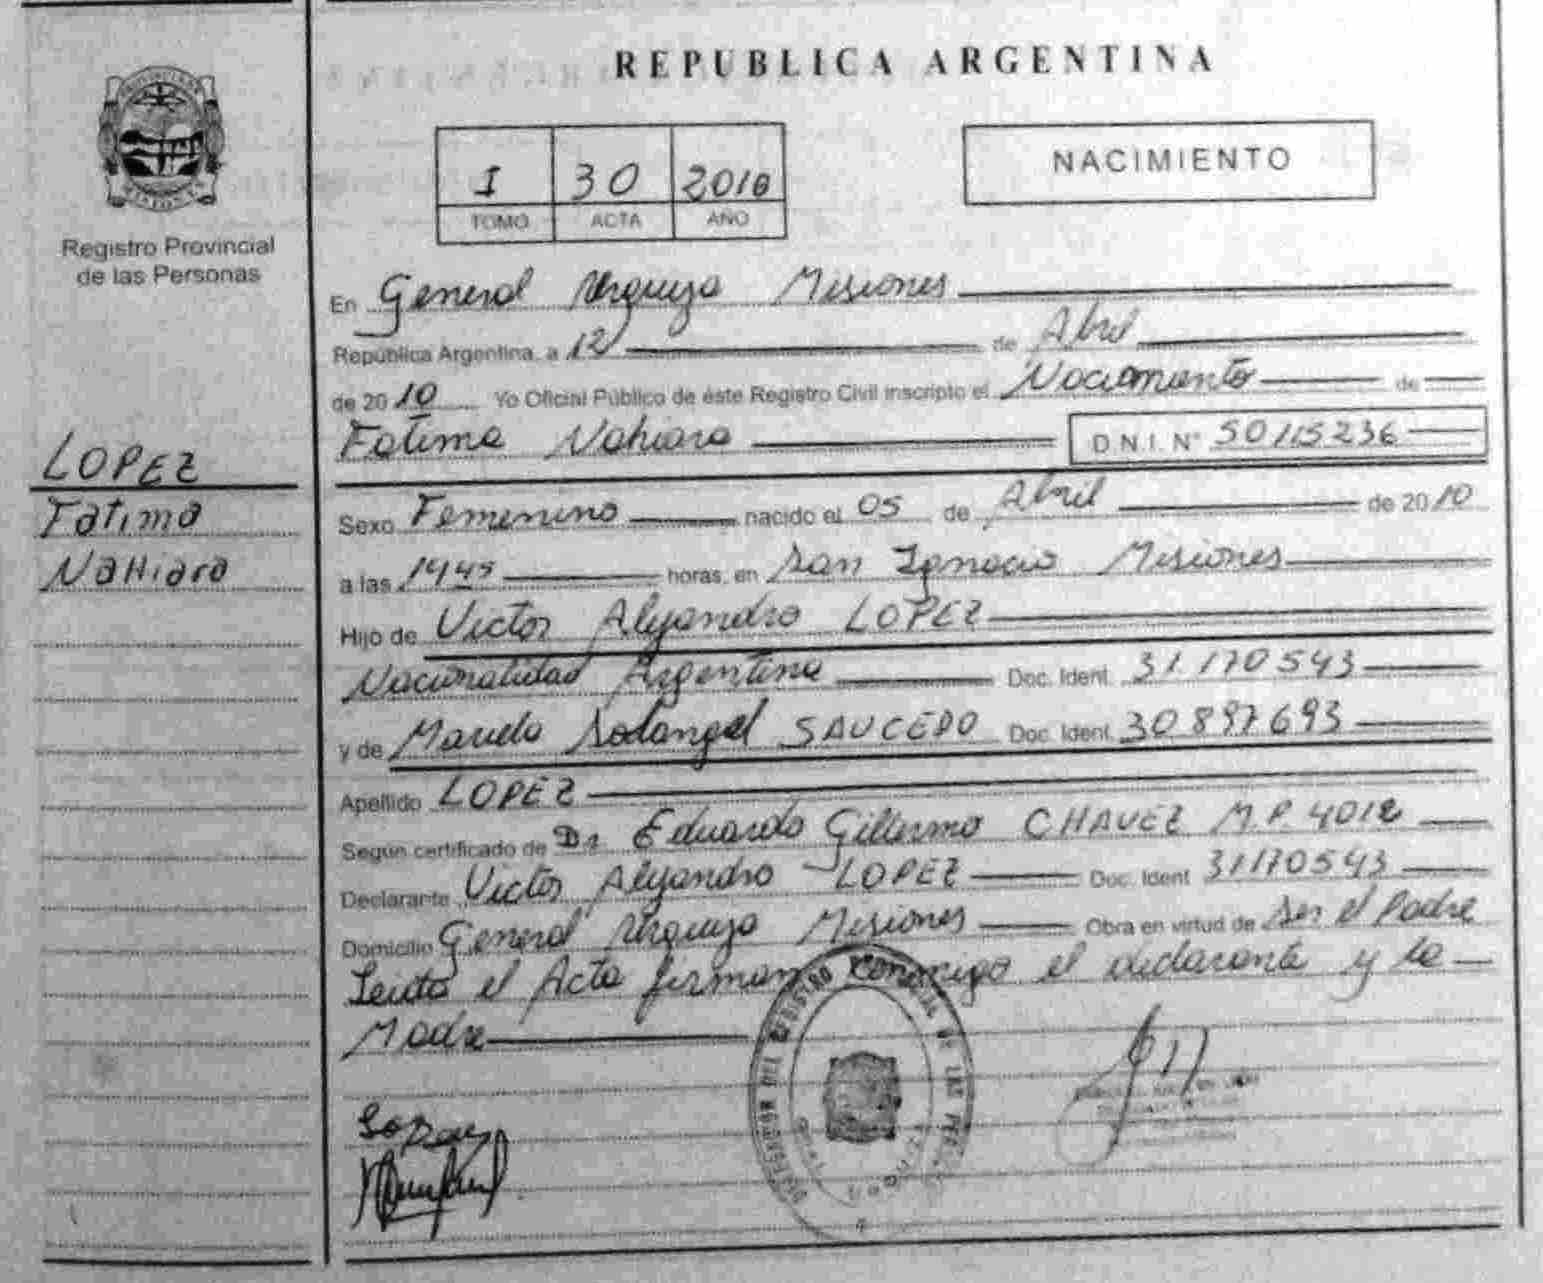 REPUBLICA ARGENTINA
Registro Provincial
de las Personas
I 30 2010
TOMO ACTA AÑO
NACIMIENTO
LOPEZ
Fatima
Nahiara
En General Urquiza Misiones
República Argentina, a 12 de Abril
de 2010 Yo Oficial Público de éste Registro Civil inscripto el Nacimiento de
Fatima Nahiara D.N.I. N° 50115236
Sexo Femenino nacido el 05 de Abril de 2010
a las 1945 horas, en San Ignacio Misiones
Hijo de Victor Alejandro LOPEZ
Nacionalidad Argentina Doc. Ident. 31.170543
y de Mariela Solangel SAUCEDO Doc. Ident. 30897693
Apellido LOPEZ
Según certificado de Dr Eduardo Gillermo CHAVEZ M.P. 4012
Declarante Victor Alejandro LOPEZ Doc. Ident 31170543
Domicilio General Urquiza Misiones Obra en virtud de ser el Padre
Leida el Acta firman conmigo el declarante y la
Madre